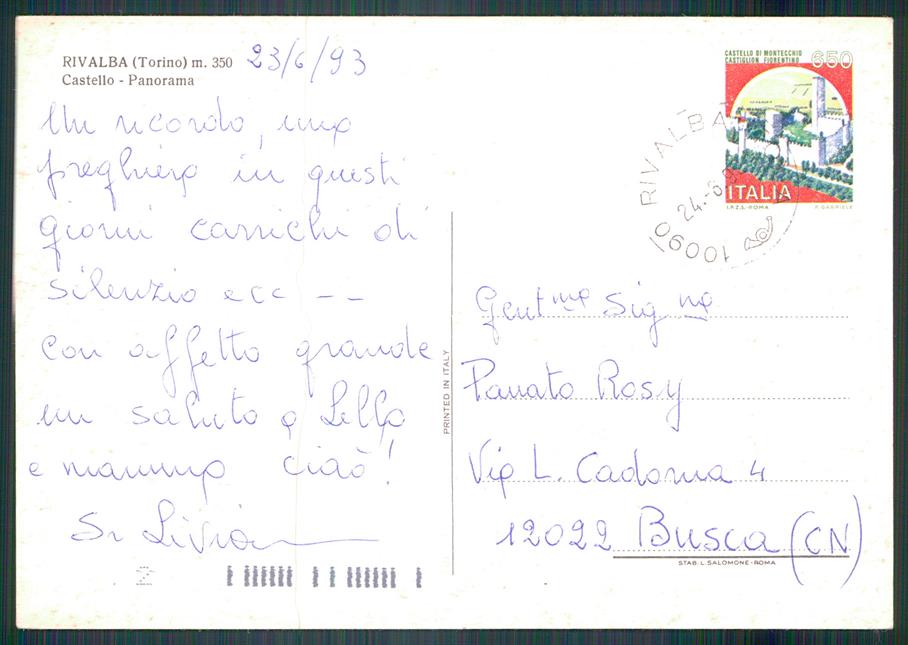 RIVALBA (Torino) m. 350
Castello - Panorama
23/6/93
Un ricordo, una
preghiera in questi
giorni carrichi di
silenzio ecc --
con affetto grande
un saluto a Lella
e mamma ciao!
Sr Livia
PRINTED IN ITALY
CASTELLO DI MONTECCHIO
CASTIGLION FIORENTINO
650
ITALIA
I.P.Z.S.-ROMA
P. GABRIELE
10090 RIVALBA
24.-6.9
Gent.ma Sig.na
Panato Rosy
Via L. Cadorna 4
12022 Busca (CN)
STAB. L. SALOMONE - ROMA